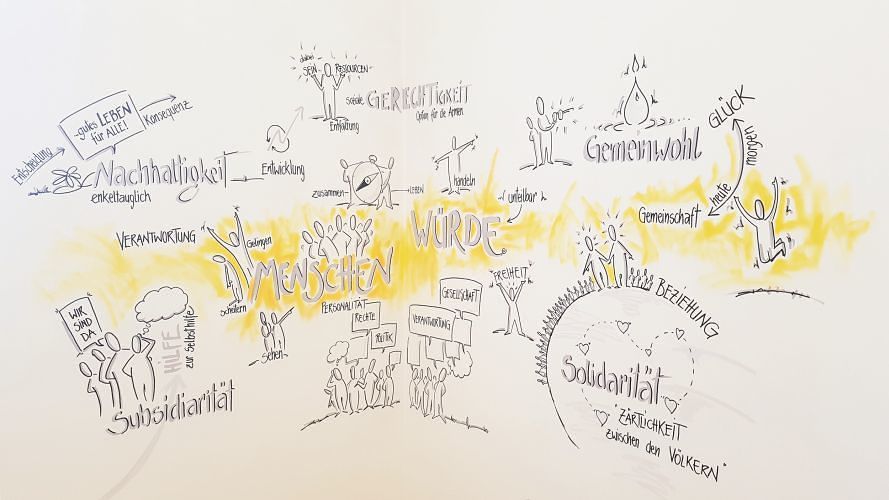 dabei
SEIN
RESSOURCEN
Entfaltung
soziale GERECHTIGKEIT
Option für die Armen
GLÜCK
morgen
heute
Gemeinwohl
Gemeinschaft
-gutes LEBEN
für ALLE!
Entscheidung
Konsequenz
Nachhaltigkeit
enkeltauglich
Entwicklung
zusammen
LEBEN
handeln
unteilbar
VERANTWORTUNG
Gelingen
scheitern
MENSCHEN
WÜRDE
WIR
SIND
DA
HILFE
zur Selbsthilfe
Subsidiarität
sehen
PERSONALITÄT
RECHTE
POLITIK
GESELLSCHAFT
VERANTWORTUNG
FREIHEIT
BEZIEHUNG
Solidarität
"ZÄRTLICHKEIT
zwischen den VÖLKERN"